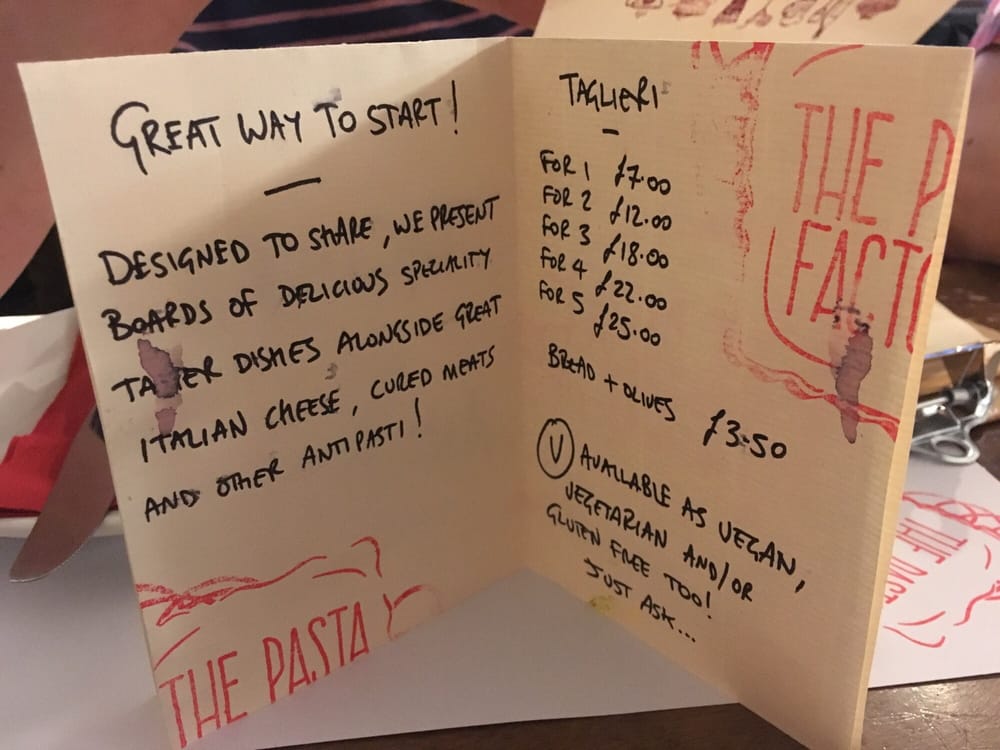 GREAT WAY TO START!
DESIGNED TO SHARE, WE PRESENT
BOARDS OF DELICIOUS SPECIALITY
TASTER DISHES ALONGSIDE GREAT
ITALIAN CHEESE, CURED MEATS
AND OTHER ANTIPASTI!
THE PASTA
TAGLIERI
FOR 1 £7.00
FOR 2 £12.00
FOR 3 £18.00
FOR 4 £22.00
FOR 5 £25.00
BREAD + OLIVES £3.50
V AVAILABLE AS VEGAN,
VEGETARIAN AND/OR
GLUTEN FREE TOO!
JUST ASK...
THE P
FACTO
THE PAST